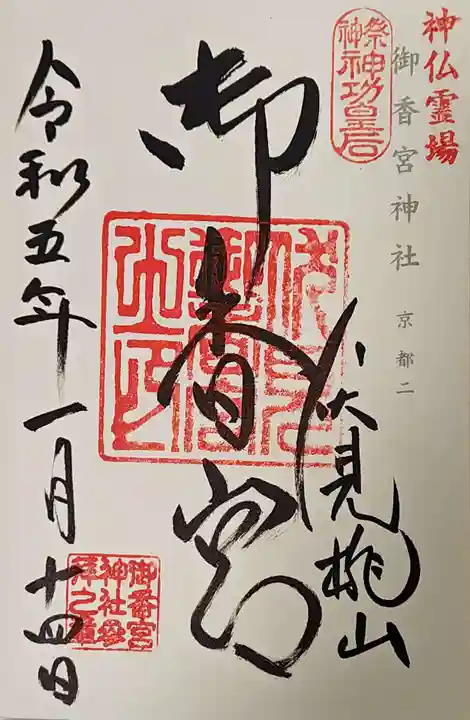 神仏霊場
御香宮神社 京都二
祭神
神功皇后
伏見桃山
御香宮
御香宮
神社参
拝之
令和五年一月十四日